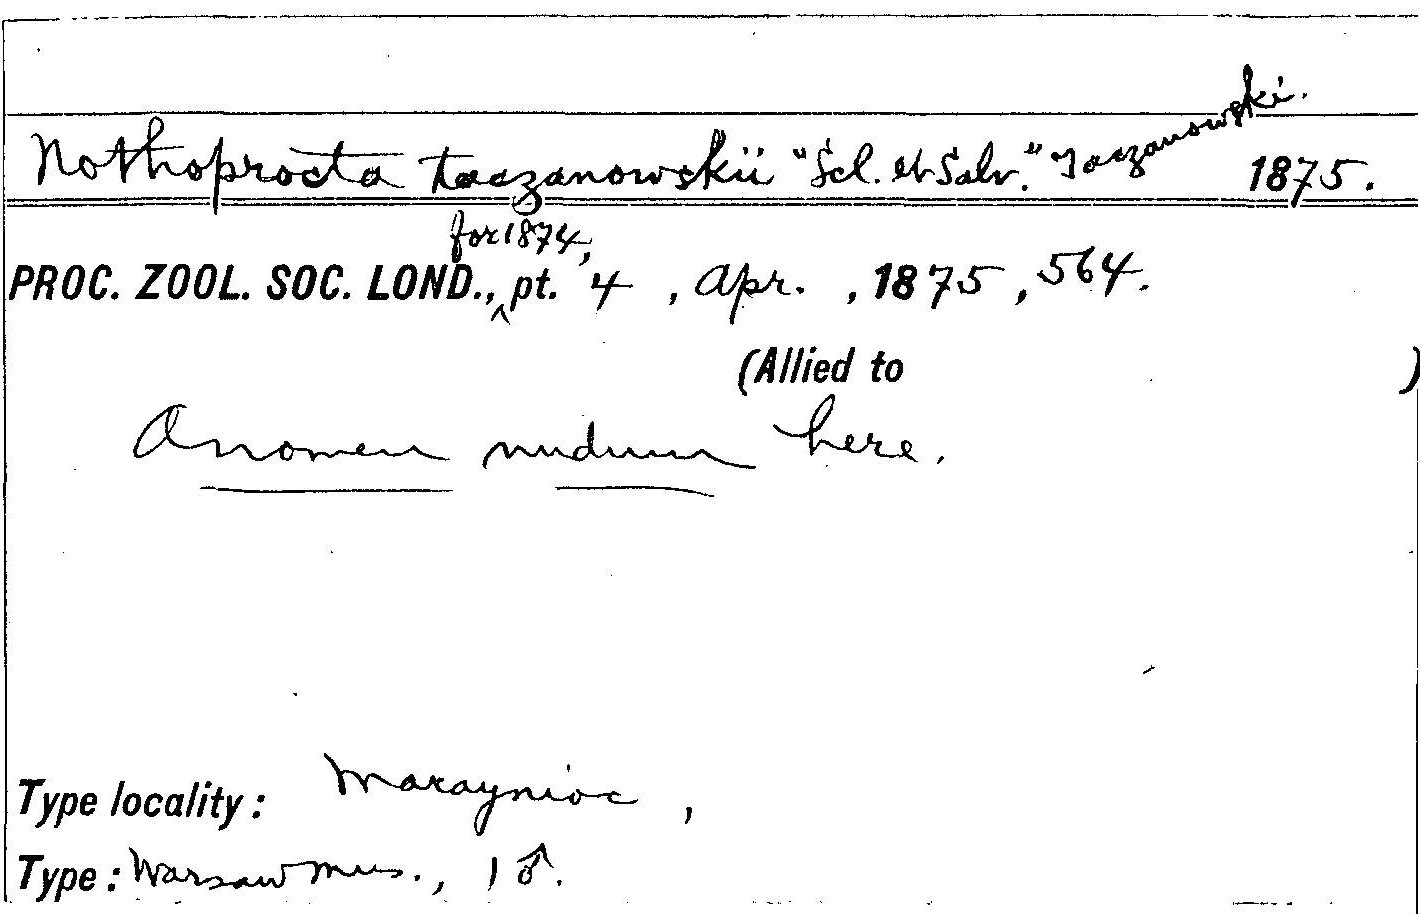 Nothoprocta taczanowskii "Scl. et Salv." Taczanowski. 1875.
for 1874,
PROC. ZOOL. SOC. LOND., ^ pt. 4, Apr., 1875, 564.
(Allied to )
A nomen nudum here.
Type locality: Maraynioc,
Type: Warsaw Mus., 1 ♂.